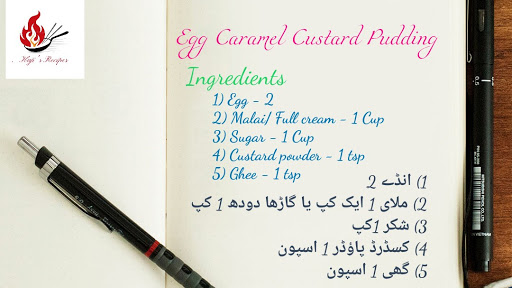 Haji's Recipes
Egg Caramel Custard Pudding
Ingredients
1) Egg - 2
2) Malai/ Full cream - 1 Cup
3) Sugar - 1 Cup
4) Custard powder - 1 tsp
5) Ghee - 1 tsp
1) انڈے 2
2) ملای 1 ایک کپ یا گاڑھا دودھ 1 کپ
3) شکر 1کپ
4) کسڈرڈ پاؤڈر 1 اسپون
5) گھی 1 اسپون
0.5